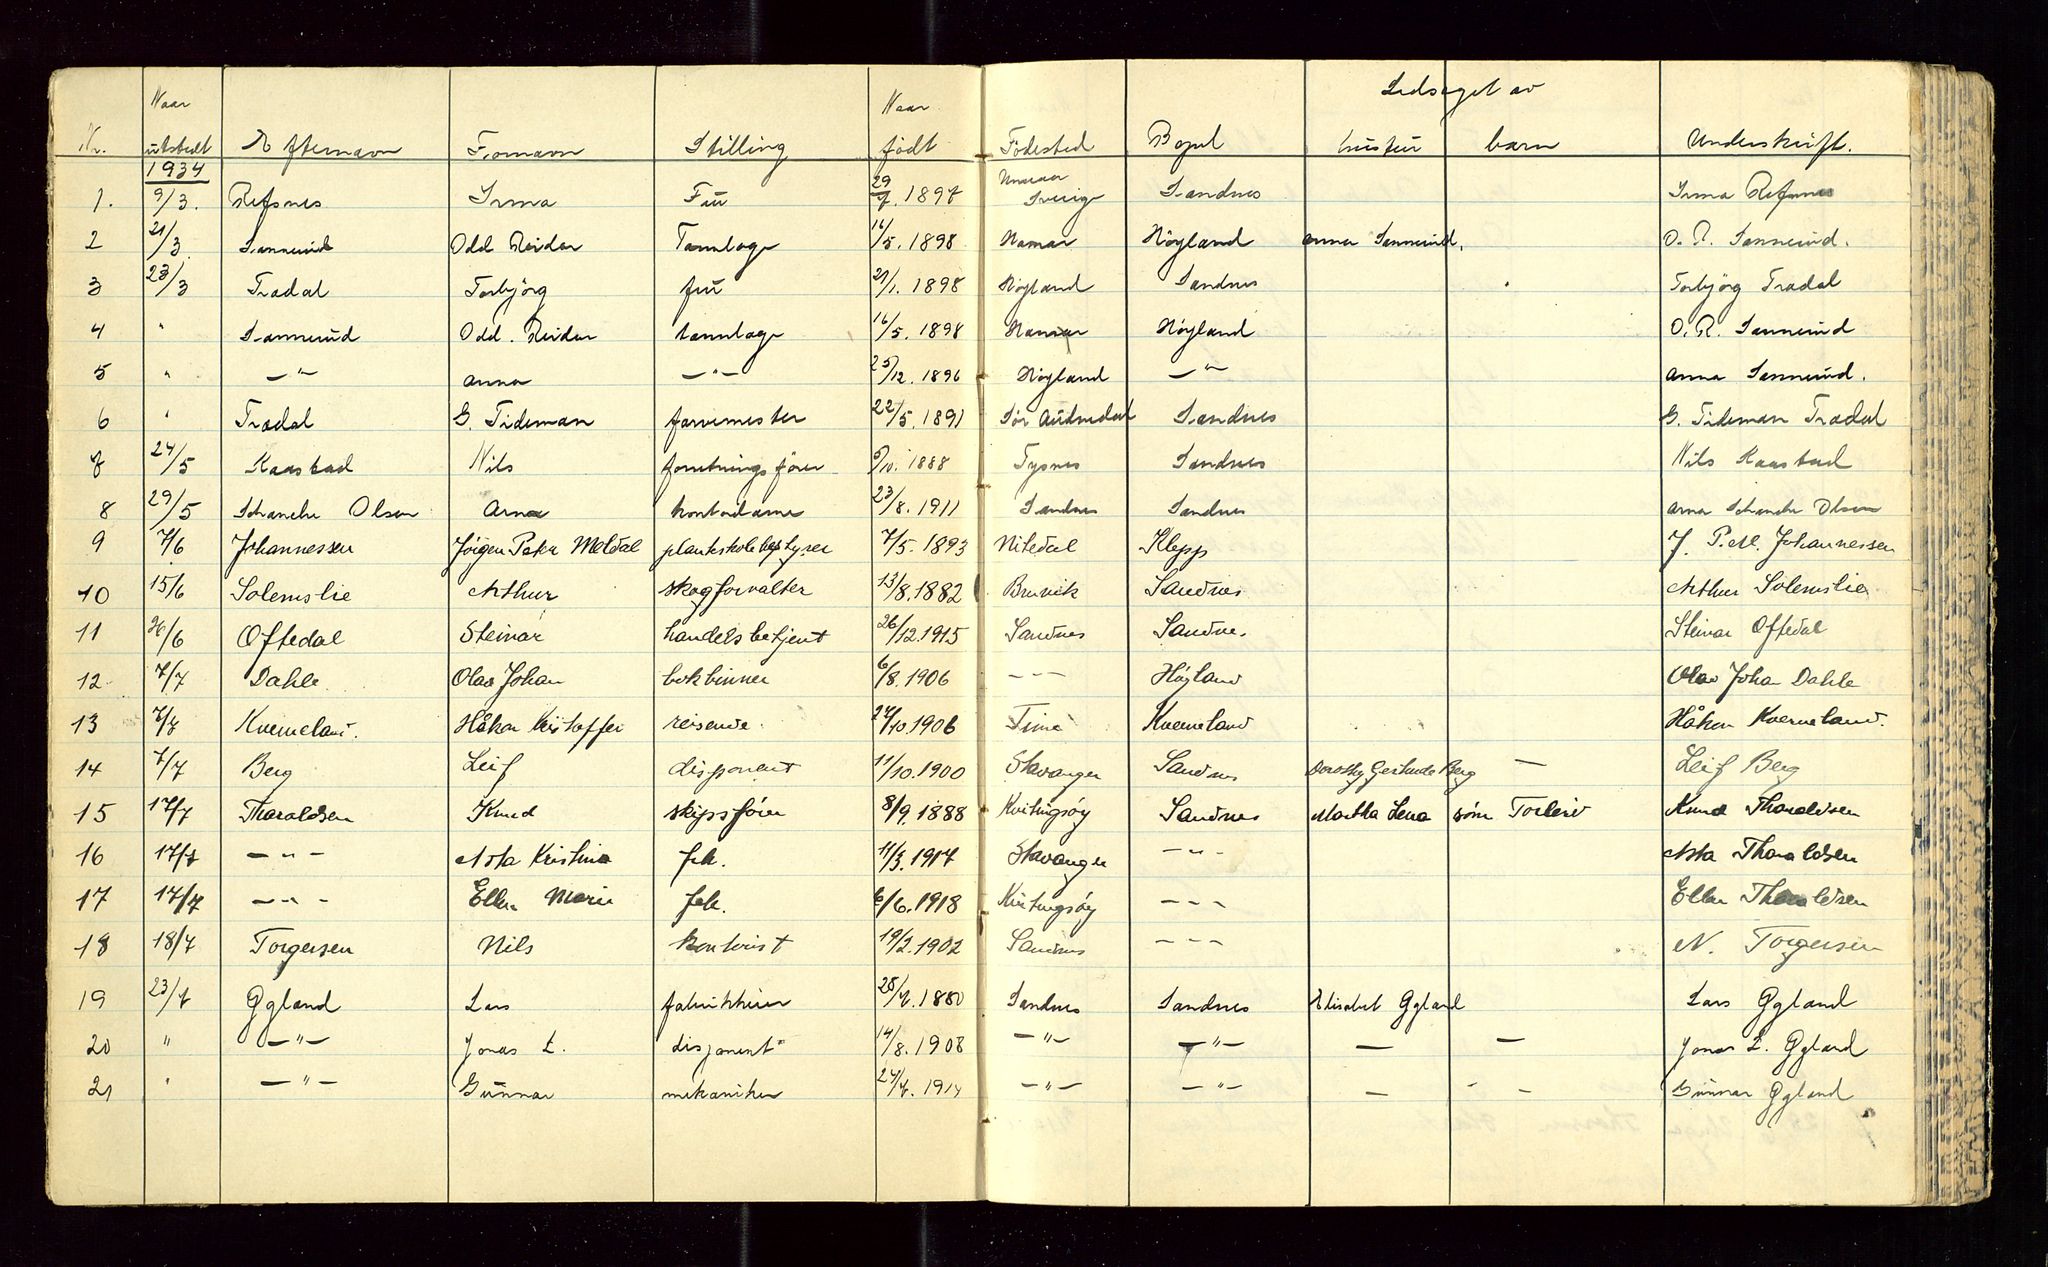 Ledsaget av
Nr. Naar utstedt Efternavn Fornavn Stilling Naar født Fødested Bopel hustru barn Underskrift.
1934
1. 9/3. Refsnes Irma Fru 29/7. 1897 Sverige Sandnes Irma Refsnes
2 21/3 Sannerud Odd Reidar Tannlege 16/5. 1898 Hamar Höyland Anna Sannerud. O. R. Sannerud.
3 23/3 Tradal Torbjörg fru 21/1. 1898 Höyland Sandnes Torbjörg Tradal
4 " Sannerud Odd. Reidar tannlege 16/5. 1898 Hamar Höyland O. R. Sannerud
5 " — " — Anna — " — 25/12. 1896 Höyland — " Anna Sannerud.
6 " Tradal G. Tideman farvemester 22/5. 1891 Sör Audnedal Sandnes G. Tideman Tradal
7 24/5 Kaastad Nils forretningsförer /10. 1888 Tysnes Sandnes Nils Kaastad
8 29/5 Schanche Olsen Arna kontordame 23/8. 1911 Sandnes Sandnes Arna Schanche Olsen
9 7/6 Johannessen Jörgen Peter Meldal planteskolebestyrer 7/5. 1893 Nitedal Klepp J. P. M. Johannessen
10 15/6 Solemslie Arthur skogforvalter 13/8. 1882 Bruvik Sandnes Arthur Solemslie
11 26/6 Oftedal Steinar handelsbetjent 26/12. 1915 Sandnes Sandne. Steinar Oftedal
12 7/7 Dahle Olav Johan bokbinner 6/8. 1906 - - - Höyland Olav Johan Dahle
13 7/7 Kverneland. Håkon Kristoffer reisende. 27/10. 1906 Time Kverneland Håkon Kverneland.
14 7/7 Berg Leif disponent 11/10. 1900 Stavanger Sandnes Dorothy Gertrude Berg — Leif Berg
15 17/7 Tharaldsen Knud skipsförer 8/9. 1888 Kvitingsöy Sandnes Martha Lena sön Torleiv Knud Tharaldsen
16 17/7 — " - Asta Kristine frk. 11/3. 1917 Stavanger - " - Asta Tharaldsen
17 17/7 — " - Ellen Marie frk. 6/6. 1918 Kvitingsöy - - - Ellen Tharaldsen
18 18/7 Torgersen Nils kontorist 19/2. 1902 Sandnes - - - N. Torgersen
19 23/7 Ggland Lars fabrikkeier 28/7. 1880 Sandnes Sandnes Elisabet Ggland Lars Ggland
20 " — " — Jonas L. disponent 14/8. 1908 — " — — " — — — Jonas L. Ggland
21 " — " — Gunnar mekaniker 27/7. 1914 — " — — " — — — Gunnar Ggland